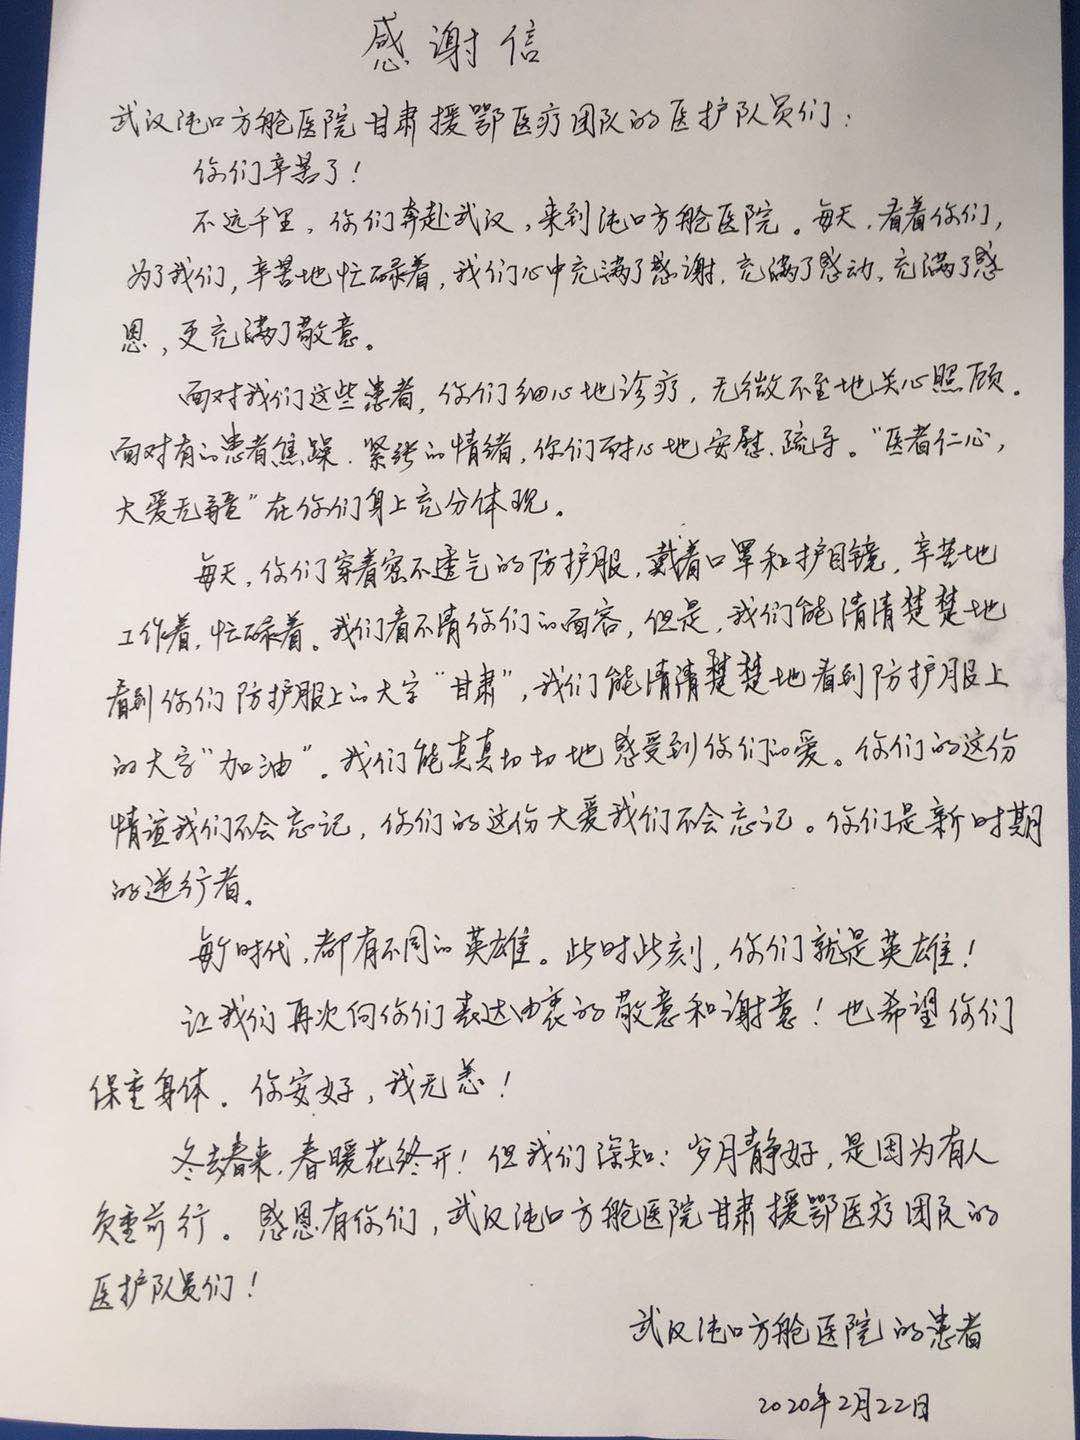 感谢信
武汉沌口方舱医院甘肃援鄂医疗团队的医护队员们：
你们辛苦了！
不远千里，你们奔赴武汉，来到沌口方舱医院。每天，看着你们，
为了我们，辛苦地忙碌着，我们心中充满了感谢，充满了感动，充满了感
恩，更充满了敬意。
面对我们这些患者，你们细心地诊疗，无微不至地关心照顾。
面对有的患者焦躁、紧张的情绪，你们耐心地安慰、疏导。“医者仁心，
大爱无疆”在你们身上充分体现。
每天，你们穿着密不透气的防护服，戴着口罩和护目镜，辛苦地
工作着，忙碌着。我们看不清你们的面容，但是，我们能清清楚楚地
看到你们防护服上的大字“甘肃”，我们能清清楚楚地看到防护服上
的大字“加油”。我们能真真切切地感受到你们的爱。你们的这份
情谊我们不会忘记，你们的这份大爱我们不会忘记。你们是新时期
的逆行者。
每个时代，都有不同的英雄。此时此刻，你们就是英雄！
让我们再次向你们表达由衷的敬意和谢意！也希望你们
保重身体。你安好，我无恙！
冬去春来，春暖花终开！但我们深知：岁月静好，是因为有人
负重前行。感恩有你们，武汉沌口方舱医院甘肃援鄂医疗团队的
医护队员们！
武汉沌口方舱医院的患者
2020年2月22日